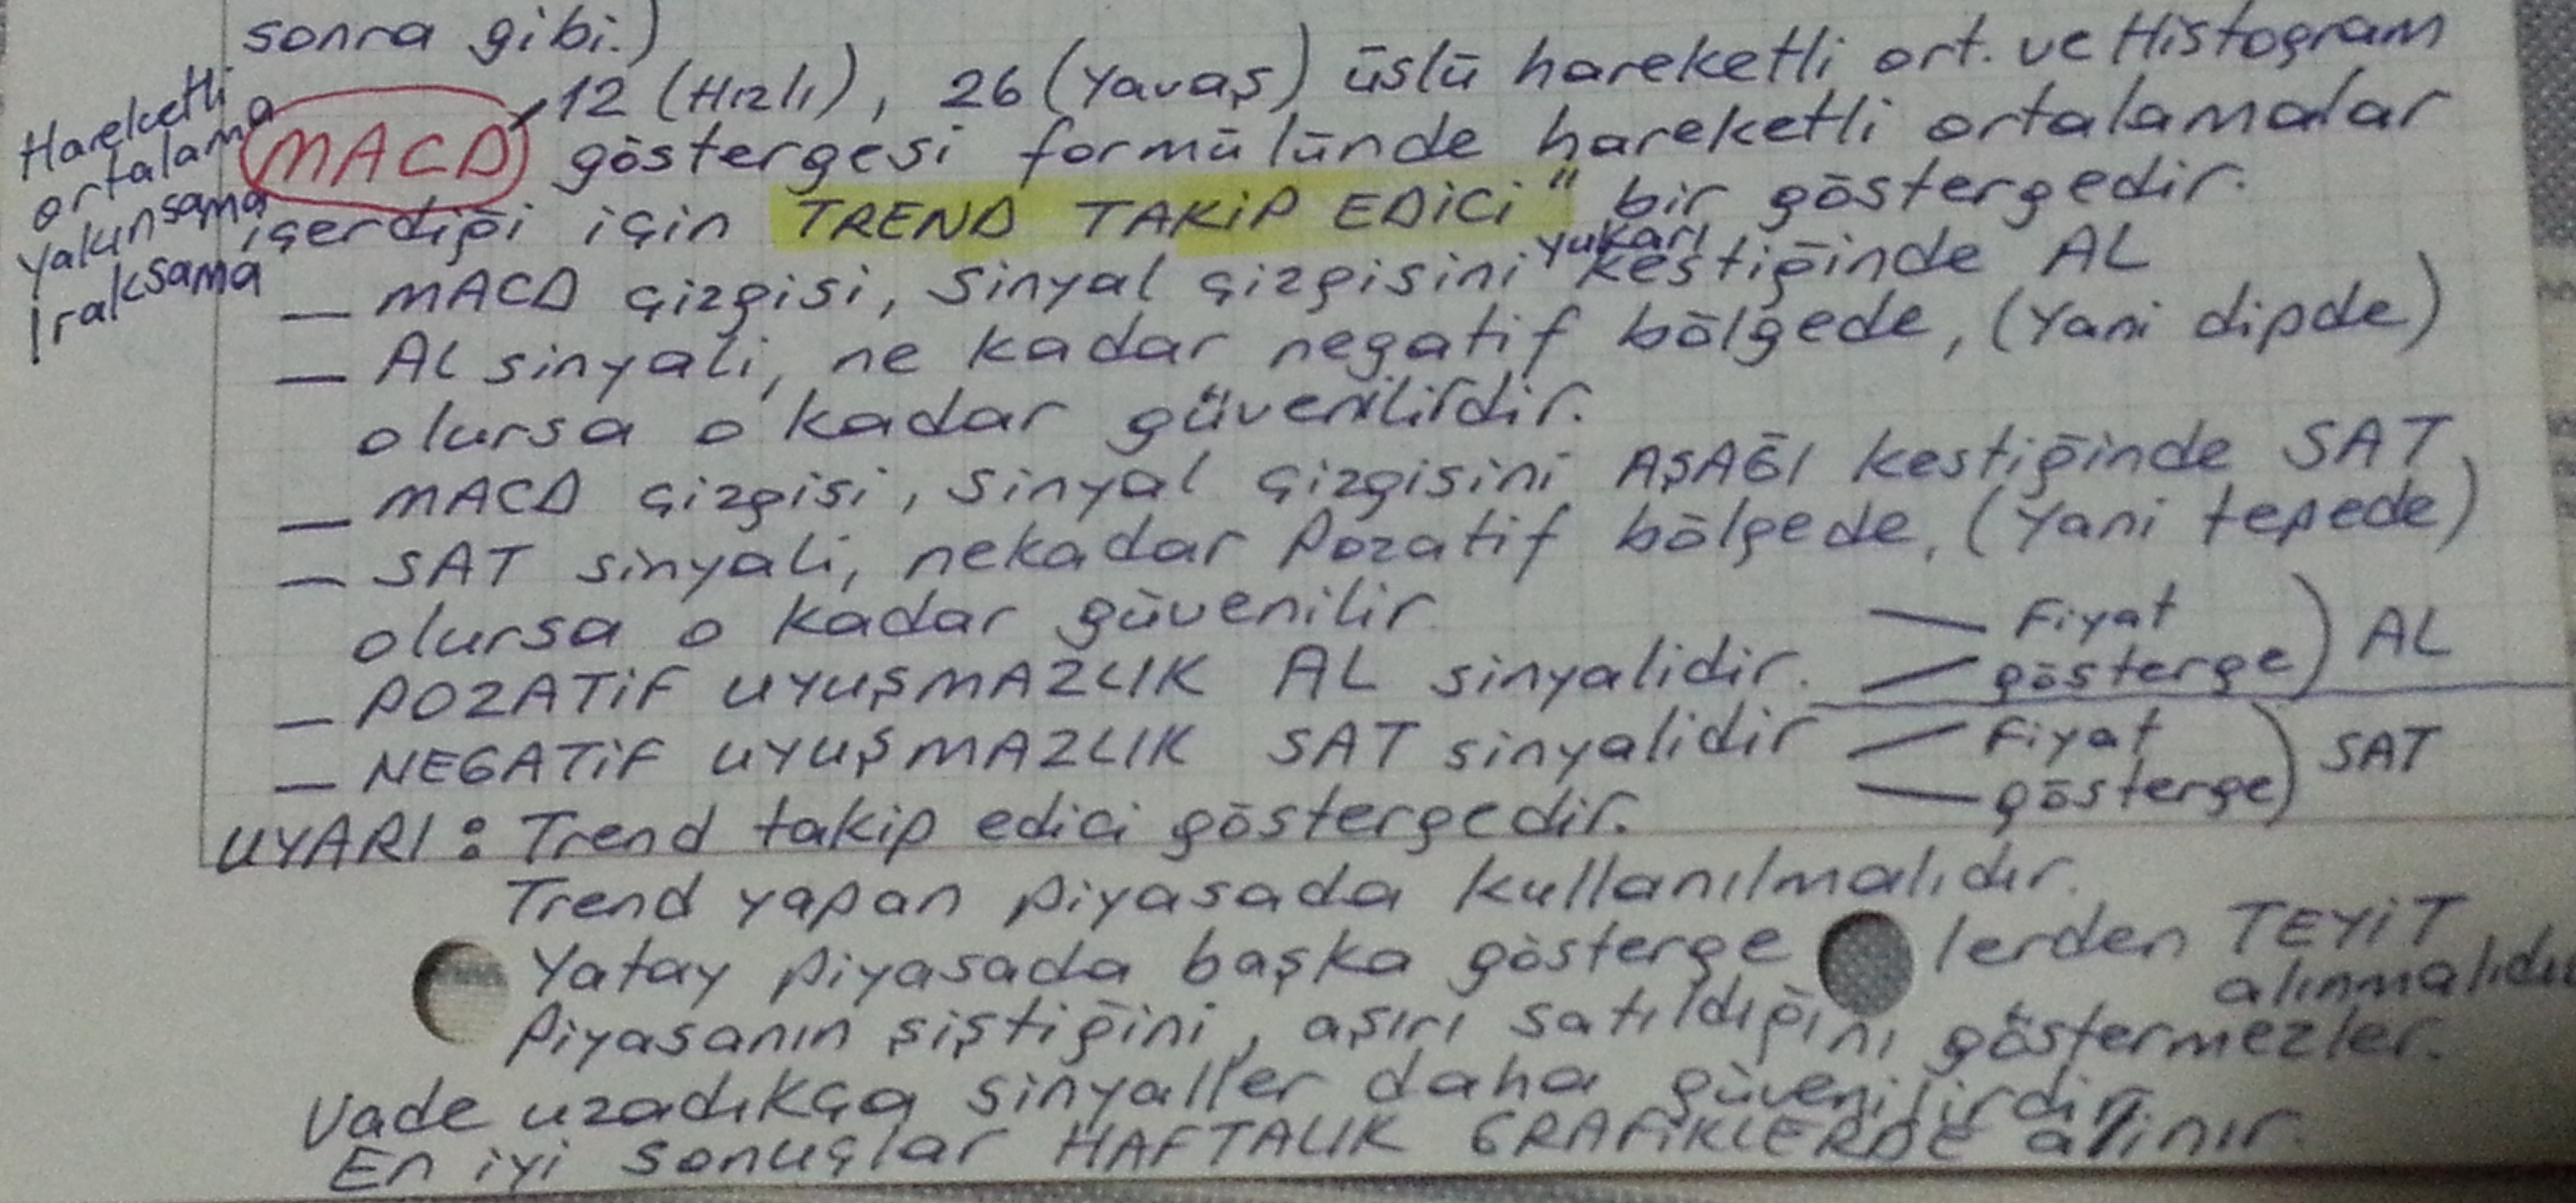 sonra gibi.)
Hareketli
ortalama
yakınsama
ıraksama
12 (Hızlı), 26 (Yavaş) üslü hareketli ort. ve Histogram
MACD göstergesi formülünde hareketli ortalamalar
içerdiği için TREND TAKİP EDİCİ" bir göstergedir.
yukarı
— MACD çizgisi, Sinyal çizgisini kestiğinde AL
— AL sinyali, ne kadar negatif bölgede, (Yani dipde)
olursa o kadar güvenilirdir.
— MACD çizgisi, sinyal çizgisini AŞAĞI kestiğinde SAT
— SAT sinyali, nekadar Pozatif bölgede, (Yani tepede)
olursa o kadar güvenilir
— POZATİF UYUŞMAZLIK AL sinyalidir. — Fiyat
— gösterge) AL
— NEGATİF UYUŞMAZLIK SAT sinyalidir — Fiyat
— gösterge) SAT
UYARI : Trend takip edici göstergedir.
Trend yapan piyasada kullanılmalıdır.
Yatay piyasada başka gösterge lerden TEYİT
alınmalıdı
Piyasanın şiştiğini, aşırı satıldığını göstermezler.
Vade uzadıkça sinyaller daha güvenilirdir.
En iyi sonuçlar HAFTALIK GRAFİKLERDE alınır.